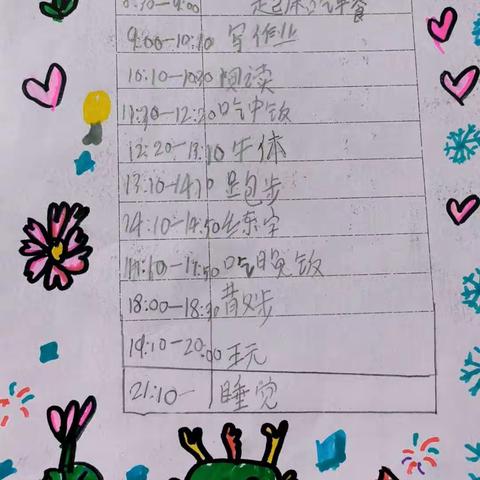 8:30—9:00 起床吃早餐
9:00—10:10 写作业
10:10—10:30 阅读
11:30—12:20 吃中饭
12:20—13:10 午休
13:10—14:10 跑步
14:10—14:50 练字
17:10—17:50 吃晚饭
18:00—18:30 散步
19:10—20:00 玩
21:10— 睡觉